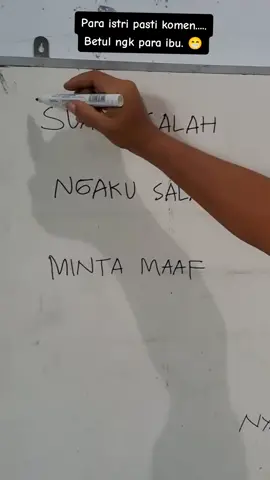 Para istri pasti komen.....
Betul ngk para ibu. 😁
SALAH
NGAKU
MINTA MAAF